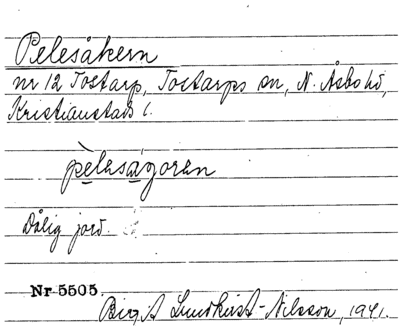 Pelesåkern
nr 12 Tostarp, Tostarps sn, N. Åsbo hd,
Kristianstads l.
pèlesågoren
Dålig jord.
Nr 5505.
Birgit Lundkvist-Nilsson, 1941.